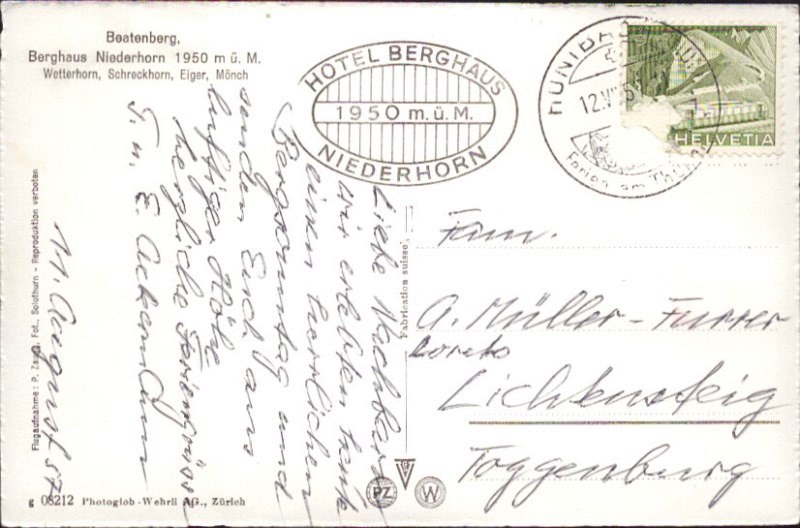 Beatenberg,
Berghaus Niederhorn 1950 m ü. M.
Wetterhorn, Schreckhorn, Eiger, Mönch
HOTEL BERGHAUS
1950 m. ü. M.
NIEDERHORN
HÜNIBACH
12.V
Ferien am Thuner
HELVETIA
11. August 57
Liebe Nachbarn
wir erlebten heute
einen herrlichen
Bergsonntag und
senden Euch aus
luftiger Höhe
herzliche Feriengrüsse
T. u. E. Ackermann
Fam.
A. Müller-Furrer
Loreto
Lichtensteig
Toggenburg
Fabrication suisse
Flugaufnahme: P. Fot., Solothurn - Reproduktion verboten
g 08212 Photoglob-Wehrli AG., Zürich
PZ W